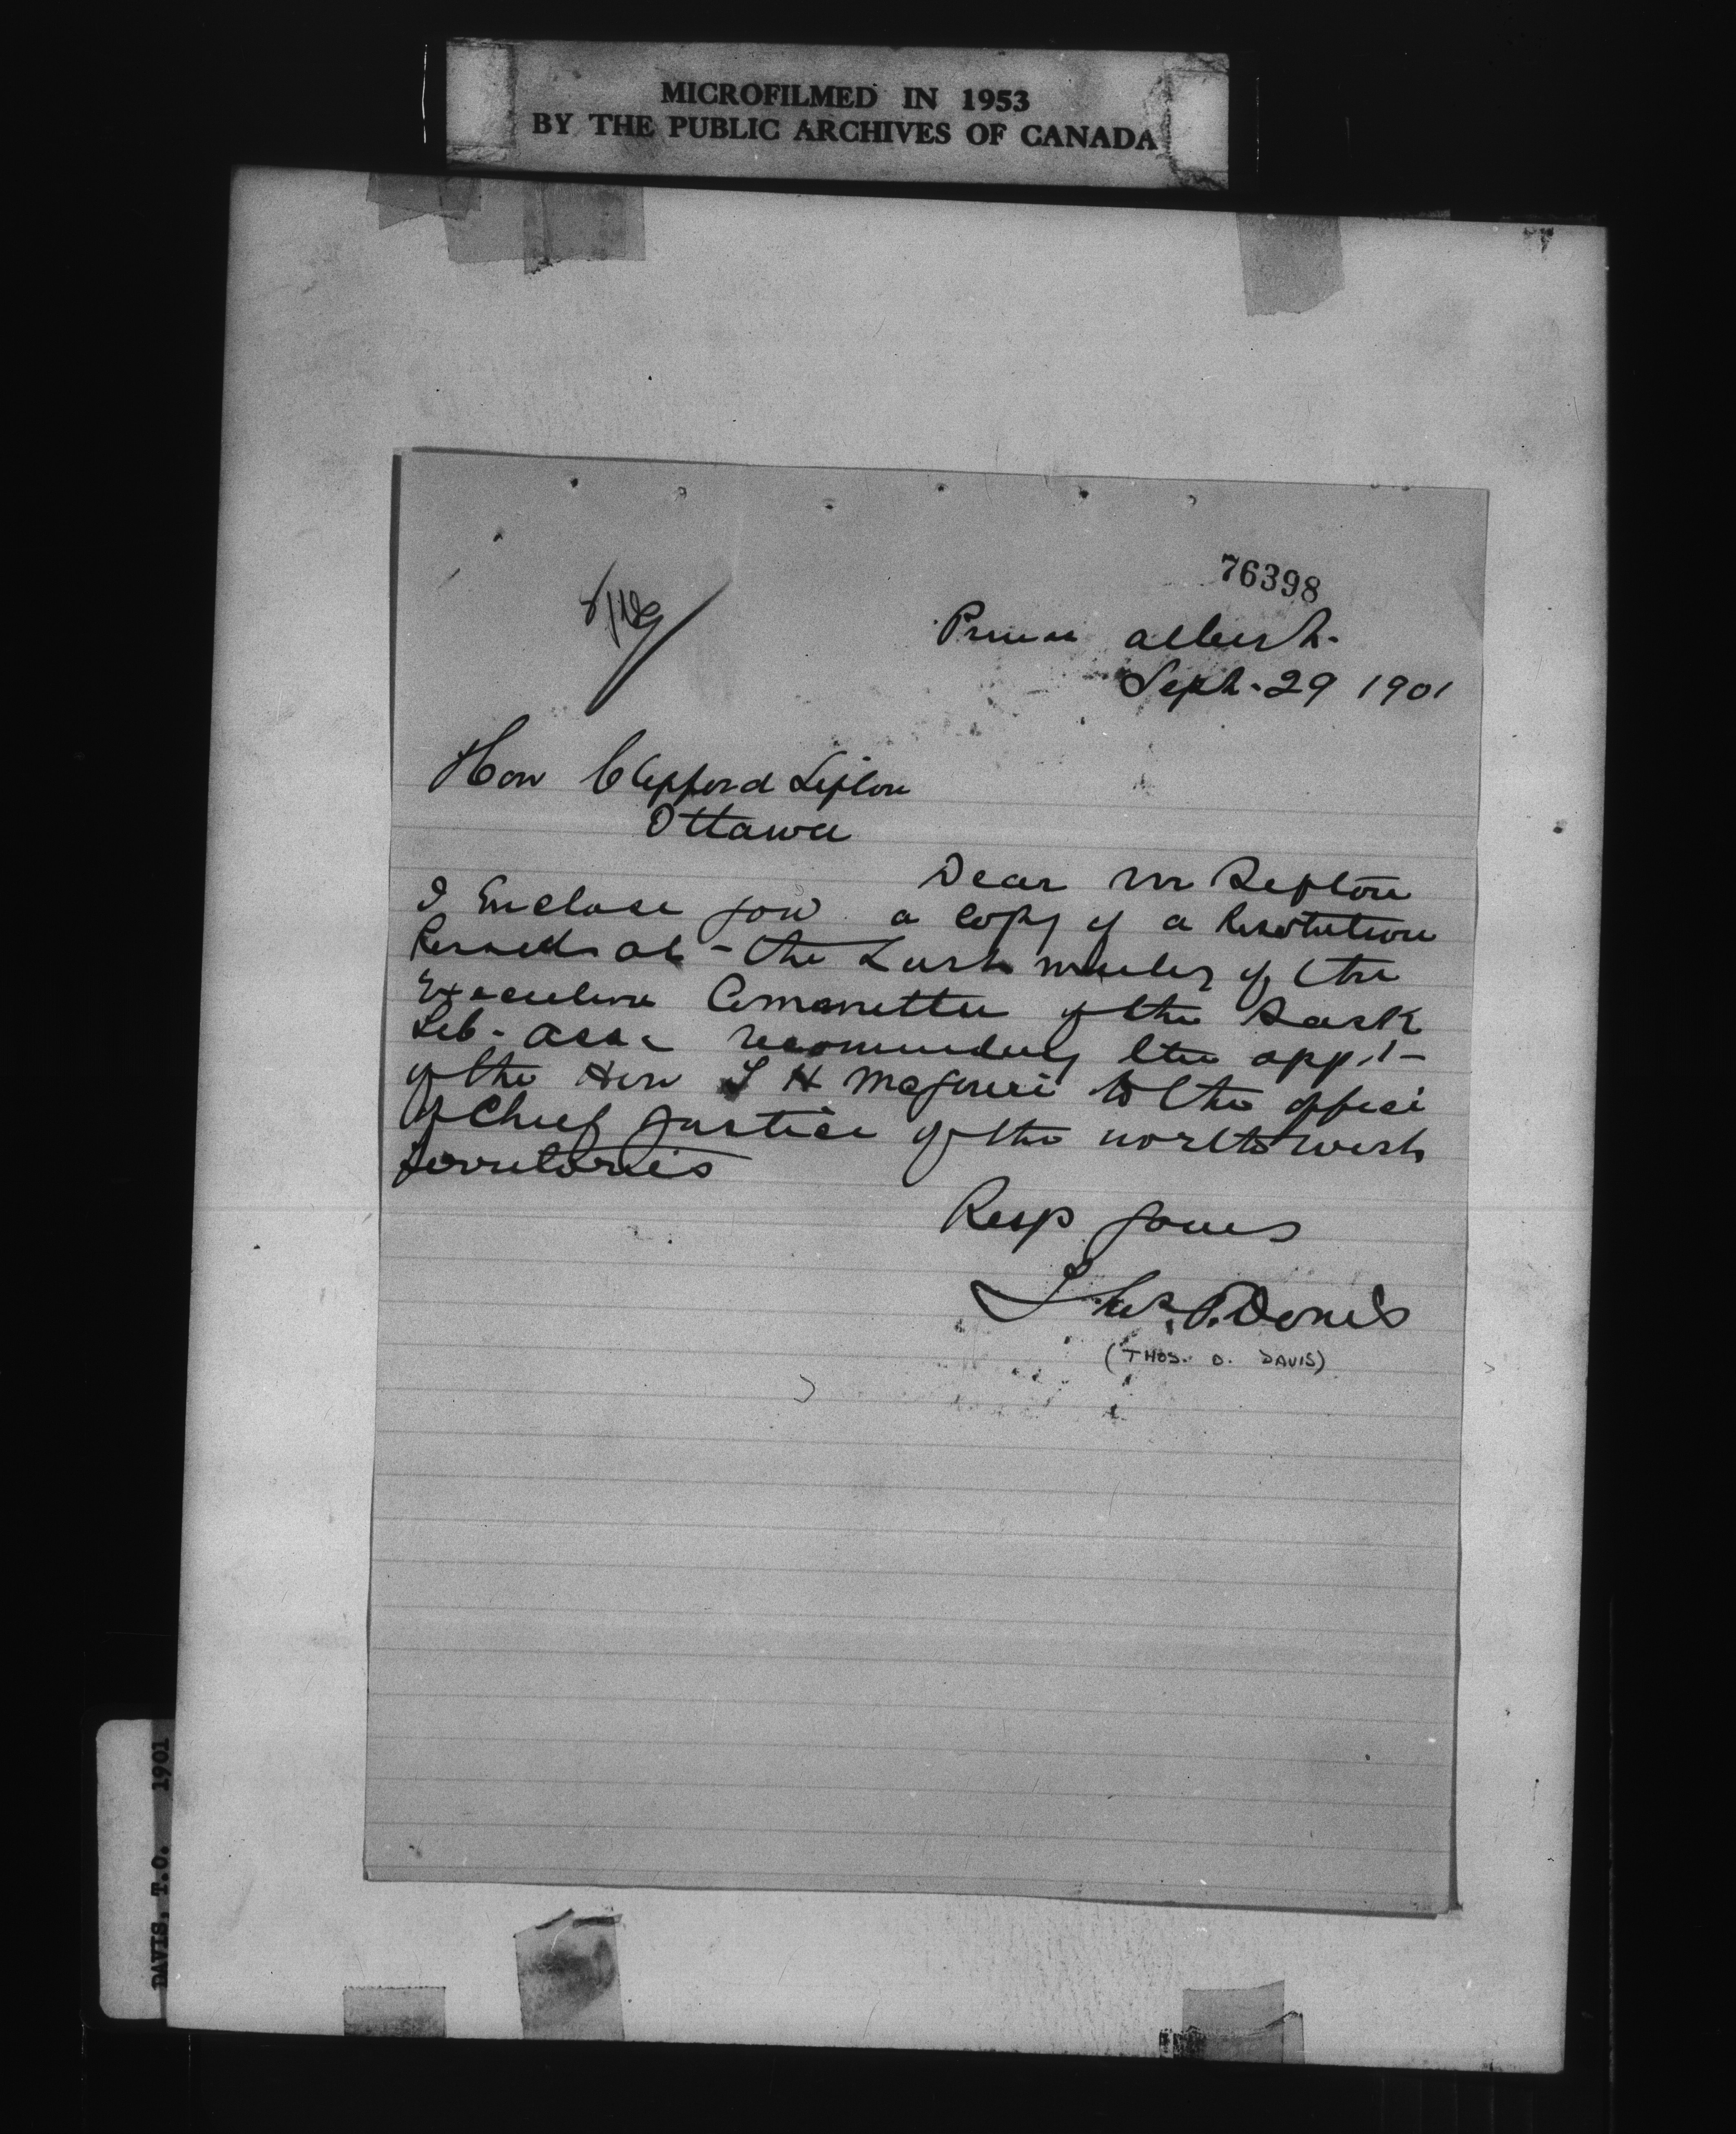 MICROFILMED IN 1953
BY THE PUBLIC ARCHIVES OF CANADA
76398
Prince Albert
Sept. 29 1901
Hon Clifford Sifton
Ottawa
Dear Mr Sifton
I Enclose you a Copy of a Resolution
Passed at the Last meeting of the
Executive Committee of the Sask
Lib. Assn recommending the appt
of the Hon T H McGuire to the office
of Chief Justice of the north west
territories
Resp yours
Thos. O. Davis
(THOS. O. DAVIS)
DAVIS, T.O. 1901